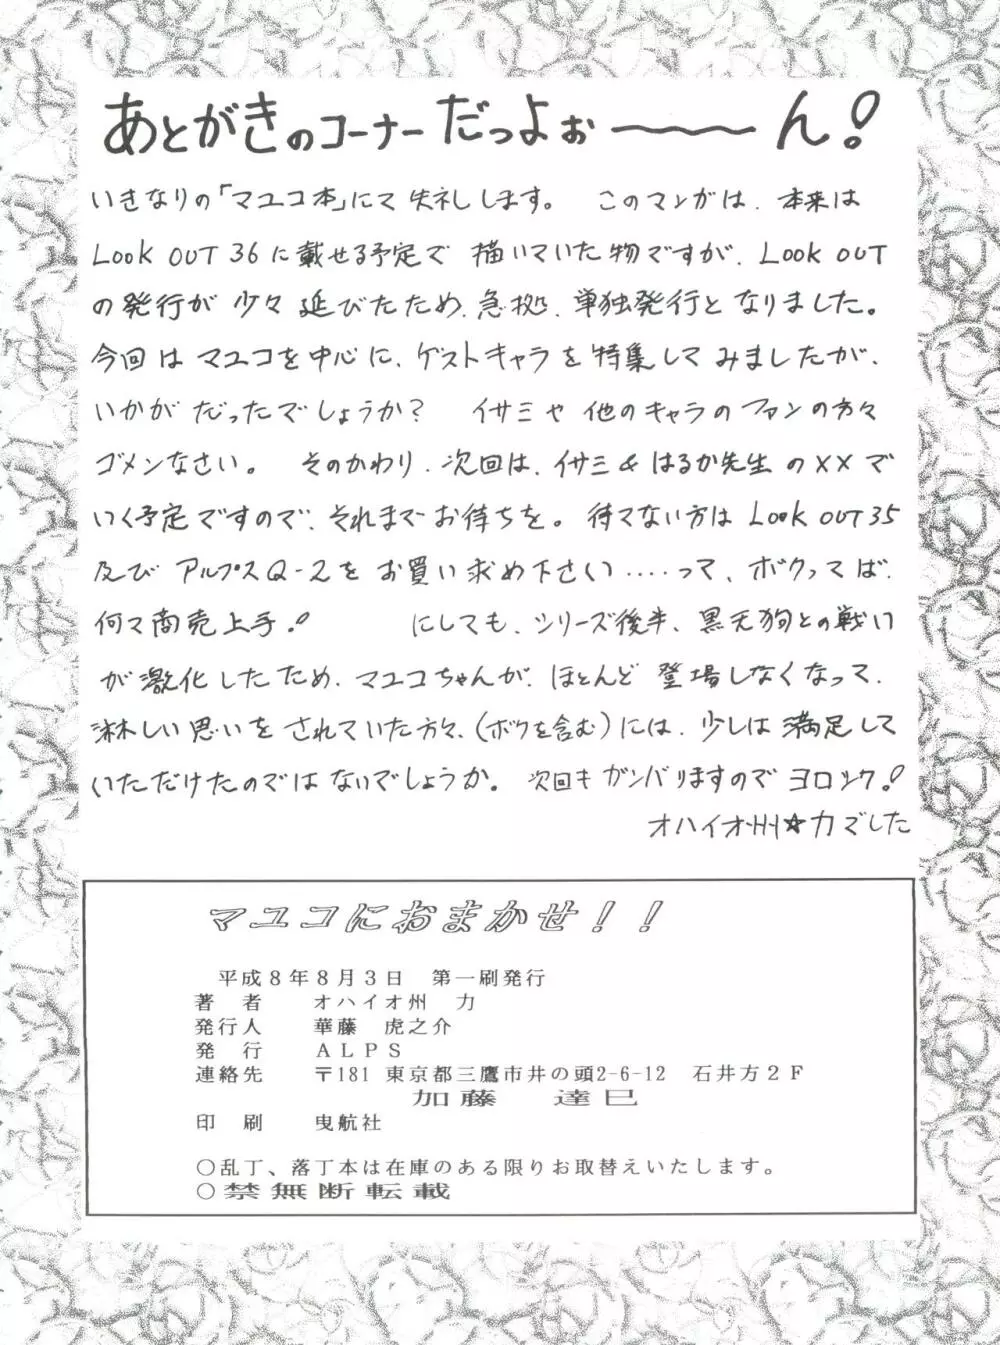 あとがきのコーナーだっよぉ〜〜〜ん!
いきなりの「マユコ本」にて失礼します。 このマンガは、本来は
Look OUT 36に載せる予定で描いていた物ですが、Look OUT
の発行が少々延びたため、急拠、単独発行となりました。
今回はマユコを中心に、ゲストキャラを特集してみましたが、
いかがだったでしょうか? イサミや他のキャラのファンの方々
ゴメンなさい。 そのかわり、次回は、イサミ&はるか先生の××で
いく予定ですので、それまでお待ちを。待てない方はLook OUT 35
及びアルプスQ-2をお買い求め下さい‥‥って、ボクってば、
何て商売上手! にしても、シリーズ後半、黒天狗との戦い
が激化したため、マユコちゃんが、ほとんど登場しなくなって、
淋しい思いをされていた方々、(ボクを含む)には、少しは満足して
いただけたのではないでしょうか。 次回もガンバりますのでヨロシク!
オハイオ州☆力でした
マユコにおまかせ!!
平成8年8月3日 第一刷発行
著 者 オハイオ州 力
発行人 華藤 虎之介
発 行 ALPS
連絡先 〒181 東京都三鷹市井の頭2-6-12 石井方2F
加藤 達巳
印 刷 曳航社
○乱丁、落丁本は在庫のある限りお取替えいたします。
○禁無断転載